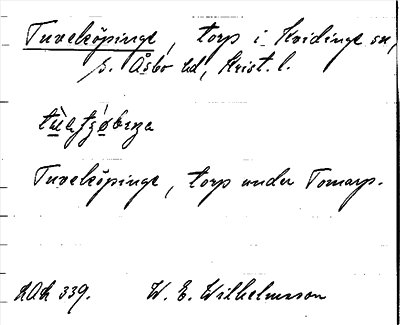 Tuveköpinge, torp i Kvidinge sn,
s. Åsbo hd, Krist. l.
Tuveköpinge, torp under Tomarp.
RAk 339. W. E. Wilhelmsson